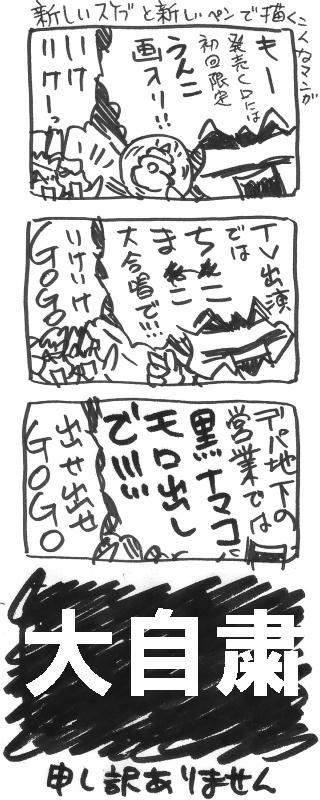 新しいスケブと新しいペンで描くこんなマンガ
もー
発売CDには
初回限定
うんこ
画入り!!
いけ
いけーっ
TV出演
では
ちんこ
まんこ
大合唱で!!!
いけいけ
GOGO
デパ地下の
営業では
黒ナマコ
モロ出し
で!!!!
出せ出せ
GOGO
大自粛
申し訳ありません